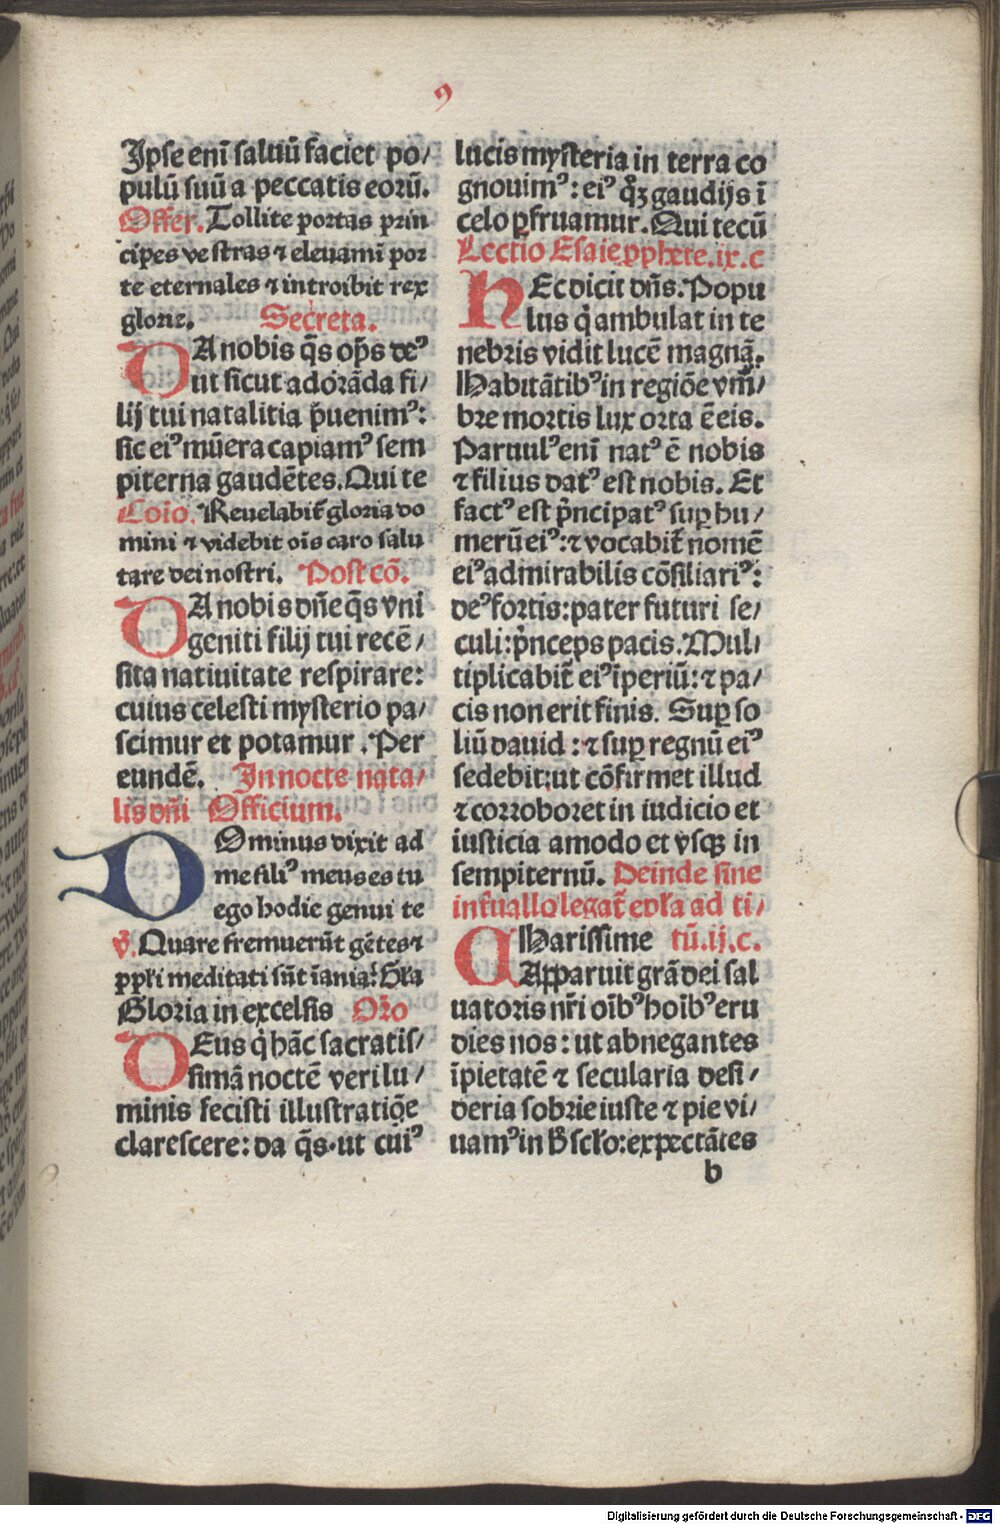 9
Ipse eni̅ saluu̅ faciet po/
pulu̅ suu̅ a peccatis eoru̅.
Offer. Tollite portas prin
cipes vestras ⁊ eleuami̅ por
te eternales ⁊ introibit rex
glorie. Secreta.
DA nobis q̅s op̅s deꝰ
vt sicut adora̅da fi/
lij tui natalitia p̅uenimꝰ:
sic eiꝰ mu̅era capiamꝰ sem
piterna gaude̅tes. Qui te
Co̅io. Reuelabit̅ gloria do
mini ⁊ videbit ois caro salu
tare dei nostri. Post co̅.
DA nobis dn̅e q̅s vni
geniti filij tui rece̅/
sita natiuitate respirare:
cuius celesti mysterio pa/
scimur et potamur. Per
eunde̅. In nocte nata/
lis dn̅i Officium.
Dominus dixit ad
me filiꝰ meus es tu
ego hodie genui te
v̅. Quare fremueru̅t ge̅tes ⁊
ppl̅i meditati su̅t i̅ania. Gl̅a
Gloria in excelsis Or̅o
DEus q̇ ha̅c sacratis/
sima̅ nocte̅ veri lu/
minis fecisti illustratio̅e
clarescere: da q̅s. vt cuiꝰ
lucis mysteria in terra co
gnouimꝰ: eiꝰ q̊ꝫ gaudijs i̅
celo ꝑfruamur. Qui tecu̅
Lectio Esaie ꝓphete. ix. c
HEc dicit dn̅s. Popu
lus q̇ ambulat in te
nebris vidit luce̅ magna̅.
Habita̅tibꝰ in regio̅e vm̅/
bre mortis lux orta e̅ eis.
Paruulꝰ eni̅ natꝰ e̅ nobis
⁊ filius datꝰ est nobis. Et
factꝰ est p̅ncipatꝰ suꝑ hu/
meru̅ eiꝰ: ⁊ vocabit̅ nome̅
eiꝰ admirabilis co̅siliariꝰ:
deꝰ fortis: pater futuri se/
culi: p̅nceps pacis. Mul/
tiplicabit̅ eiꝰ i̅periu̅: ⁊ pa/
cis non erit finis. Suꝑ so
liu̅ dauid: ⁊ suꝑ regnu̅ eiꝰ
sedebit: vt co̅firmet illud
⁊ corroboret in iudicio et
iusticia amodo et vsqꝫ in
sempiternu̅. Deinde sine
int̅uallo legat̅ epl̅a ad ti/
CHarissime tu̅. ij. c.
Apparuit gra̅ dei sal
uatoris nr̅i oi̅bꝰ hoi̅bꝰ eru
diens nos: vt abnegantes
i̅pietate̅ ⁊ secularia desi/
deria sobrie iuste ⁊ pie vi/
uamꝰ in h̅ scl̅o: expecta̅tes
b
Digitalisierung gefördert durch die Deutsche Forschungsgemeinschaft - DFG